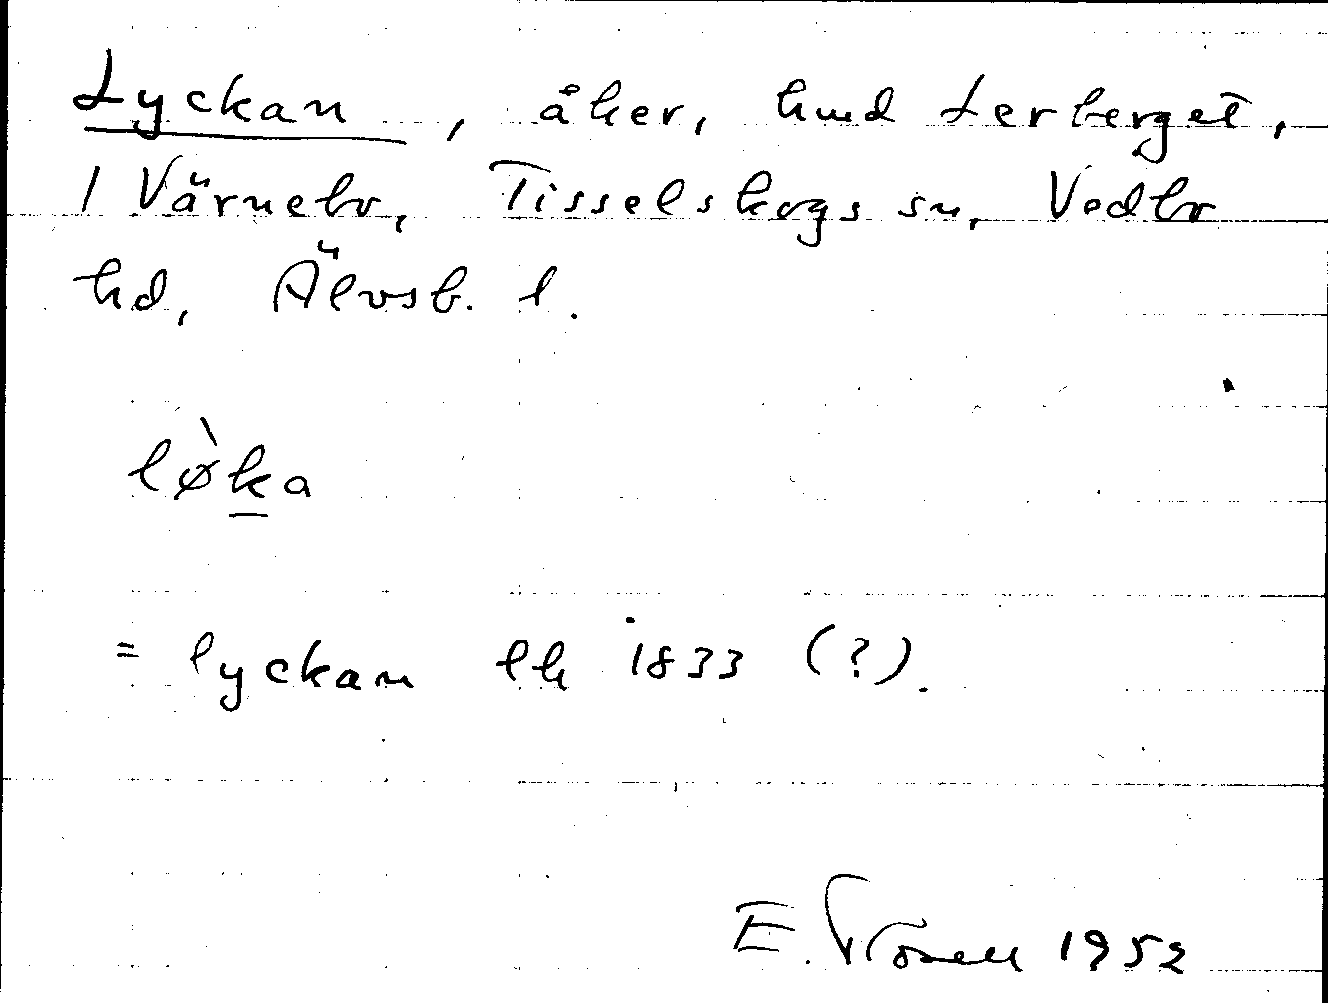 Lyckan, åker, hmd Lerberget,
1 Värnebo, Tisselskogs sn, Vedbo
hd, Älvsb. l.
lø̀ka
= lyckan lh 1833 (?).
E. 1952